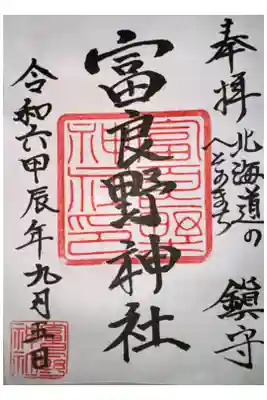 奉拝 北海道の
へそのまち
鎮守
富良野神社
令和六甲辰年九月五日
富良野神社印